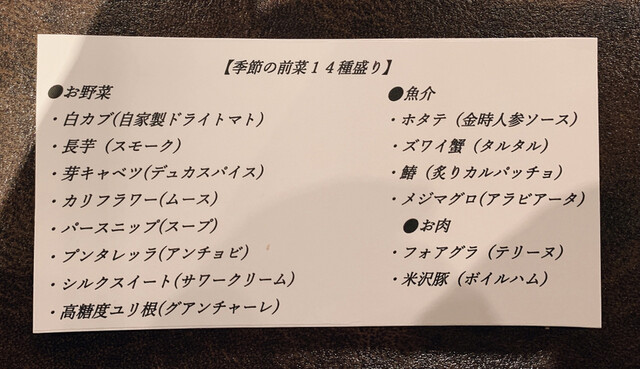 【季節の前菜１４種盛り】
●お野菜
・白カブ(自家製ドライトマト)
・長芋（スモーク）
・芽キャベツ(デュカスパイス)
・カリフラワー(ムース)
・パースニップ(スープ)
・プンタレッラ(アンチョビ)
・シルクスイート(サワークリーム)
・高糖度ユリ根(グアンチャーレ)
●魚介
・ホタテ（金時人参ソース）
・ズワイ蟹（タルタル）
・鰆（炙りカルパッチョ）
・メジマグロ(アラビアータ)
●お肉
・フォアグラ（テリーヌ）
・米沢豚（ボイルハム）